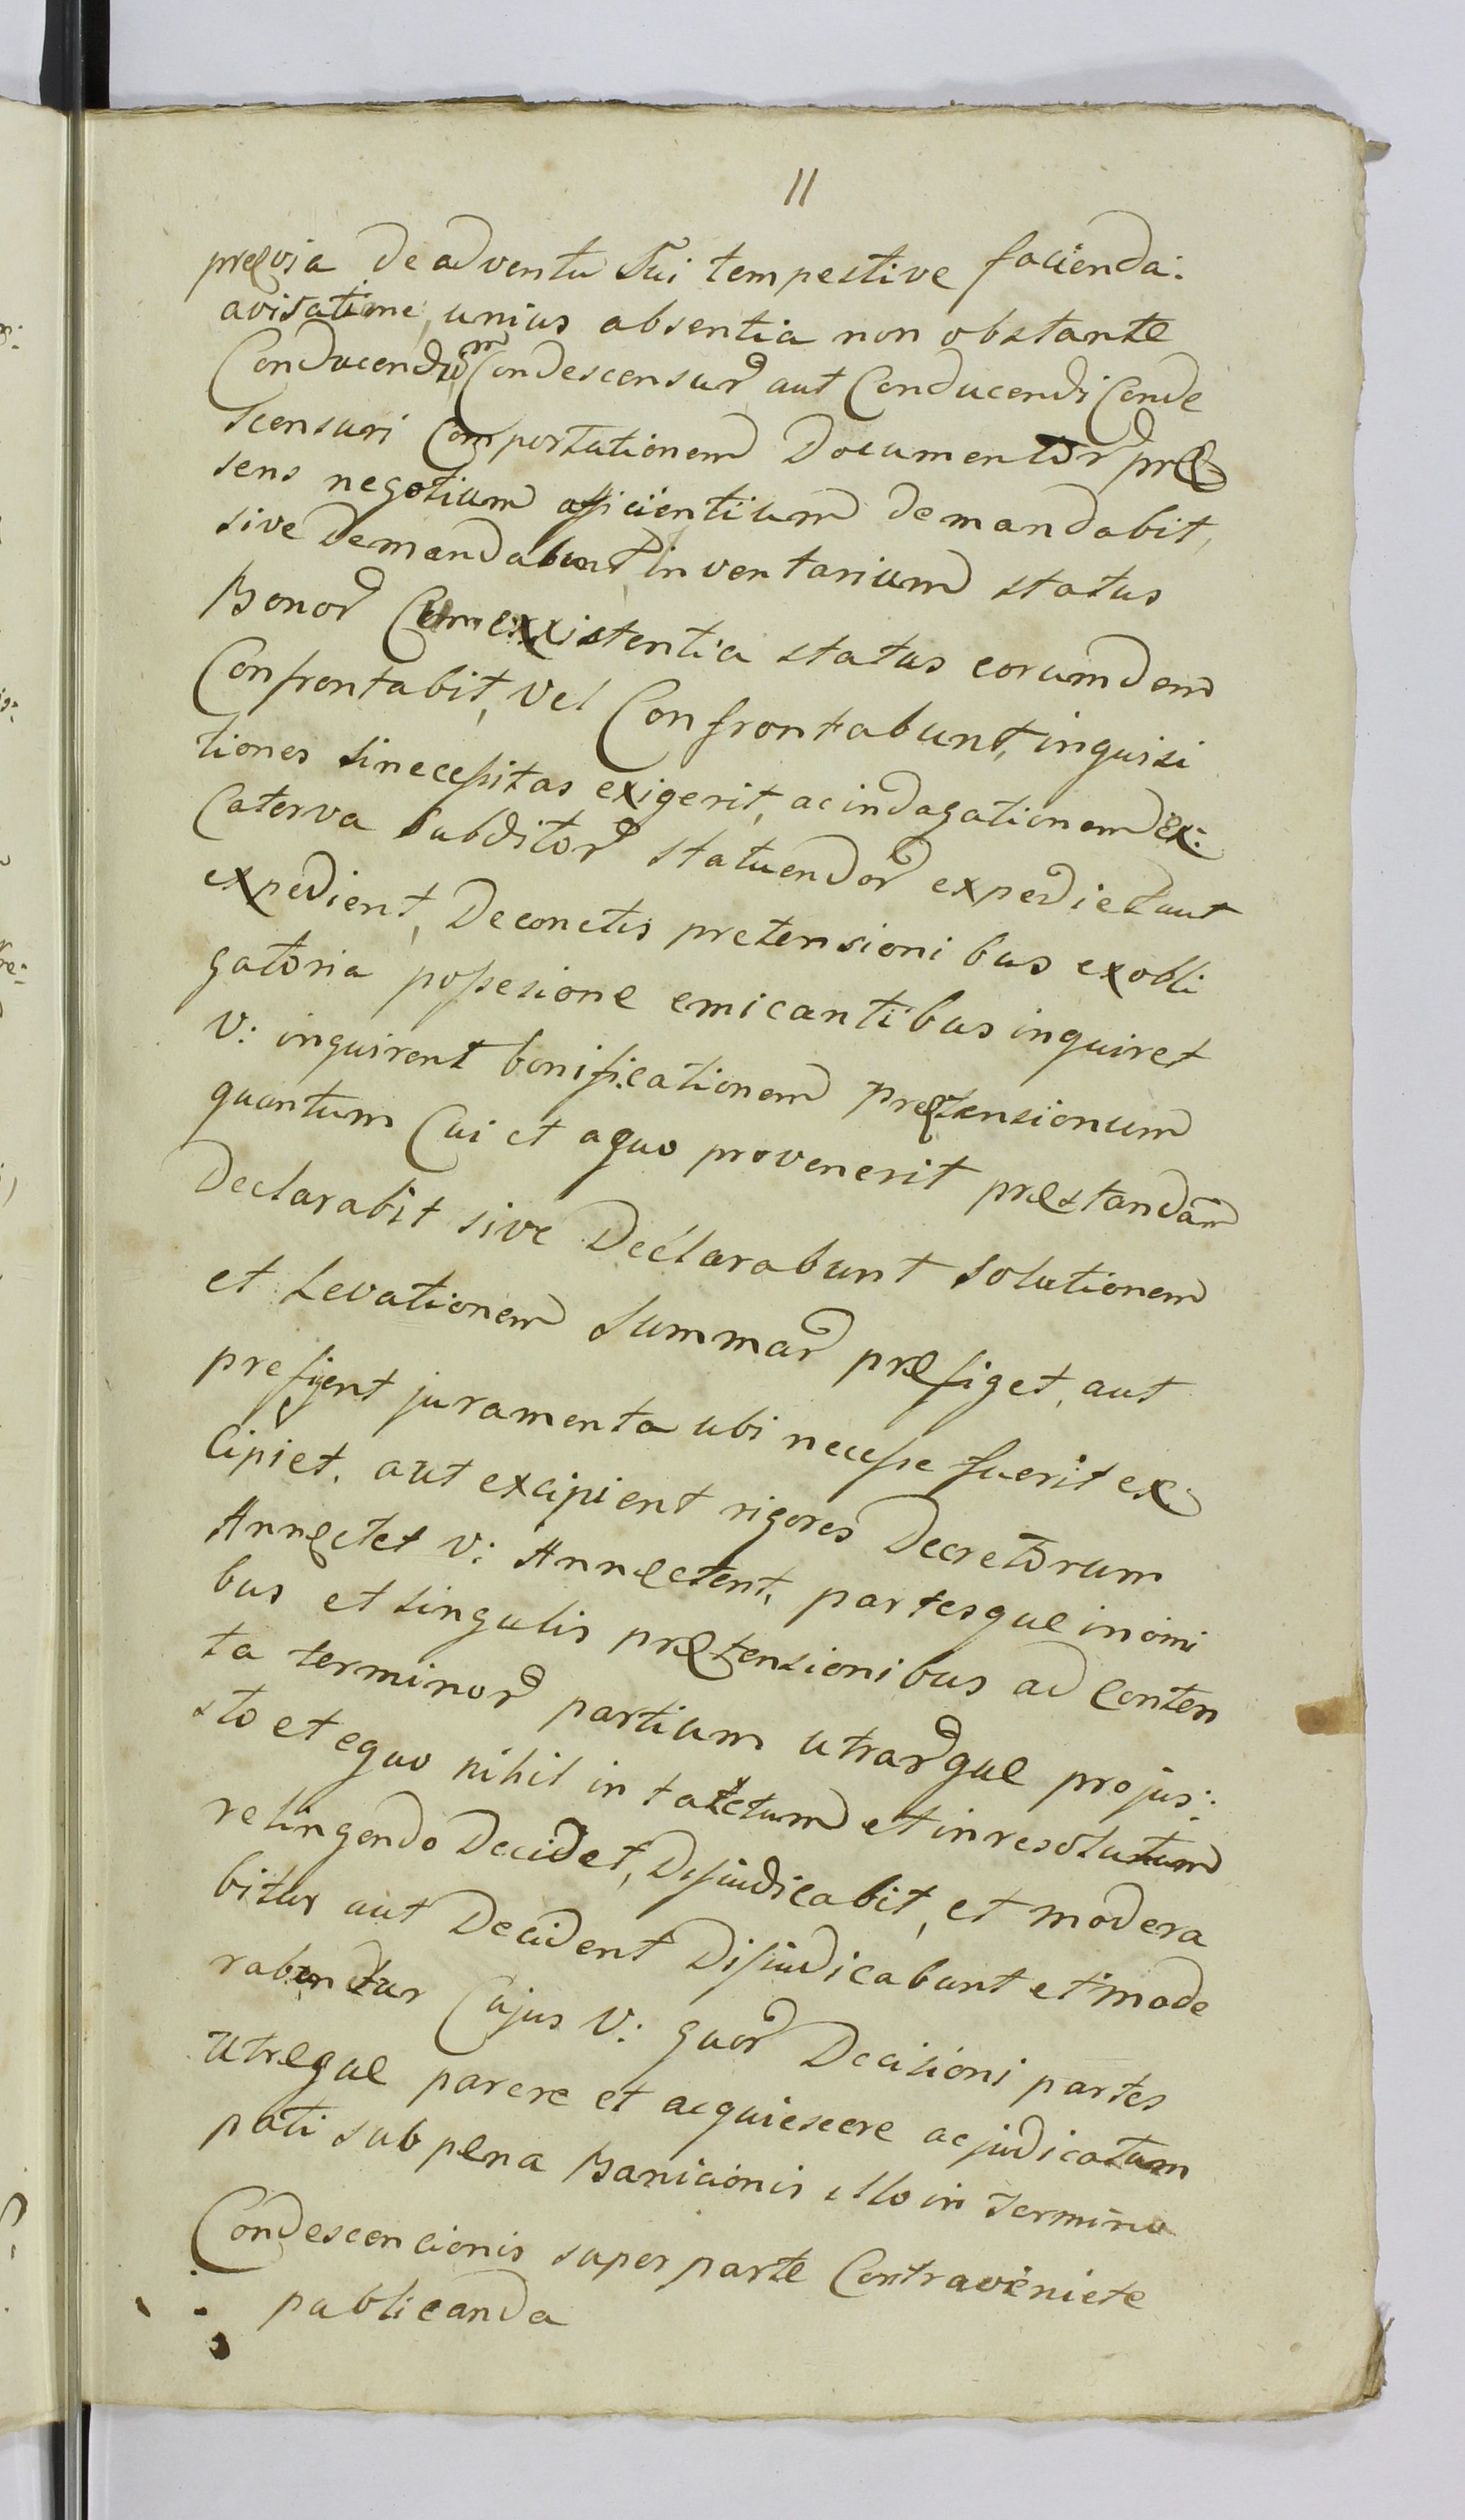 11
prævia de adventu sui tempestive facienda:
avisatione, unius absentia non obstante
Conducendum Condescensur aut Conducendi Conde
scensuri Comportationem Documentor præ
sens negotium afficientium demandabit,
sive Demandabunt, inventarium status
Bonor Cum exxistentia status eorumdem
Confrontabit, vel Confrontabunt, inquisi
tiones si necessitas exigerit, ac indagationem ex:
Caterva subditor statuendor expediet aut
expedient, De conctis pretensionibus ex obli
gatoria possesione emicantibus inquiret
V: inquirent bonificationem prætensionum
quantum Cui et a quo provenerit præstandam
Declarabit sive Declarabunt solutionem
et Levationem Summar præfiget, aut
prefigent juramenta ubi necesse fuerit ex
cipiet, aut excipient rigores Decretorum
Annectet V: Annectent, partesque in omi
bus et singulis prætensionibus ad conten
ta terminor partium utrarque pro jus:
sto et equo nihil in tatctum et inresolutum
relinqendo Decidet, Dijudicabit, et modera
bitur aut Decident Dijudicabunt et mode
rabuntur Cujus V: quor Decisioni partes
utræque parere et acquiescere ac judicatum
pati sub pena Banicionis illo in Termino
Condescencionis super parte Contraveniete
publicanda